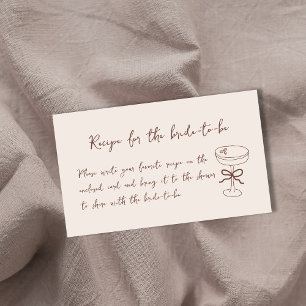 Recipe for the bride-to-be
Please write your favorite recipe on the
enclosed card and bring it to the shower
to share with the bride-to-be